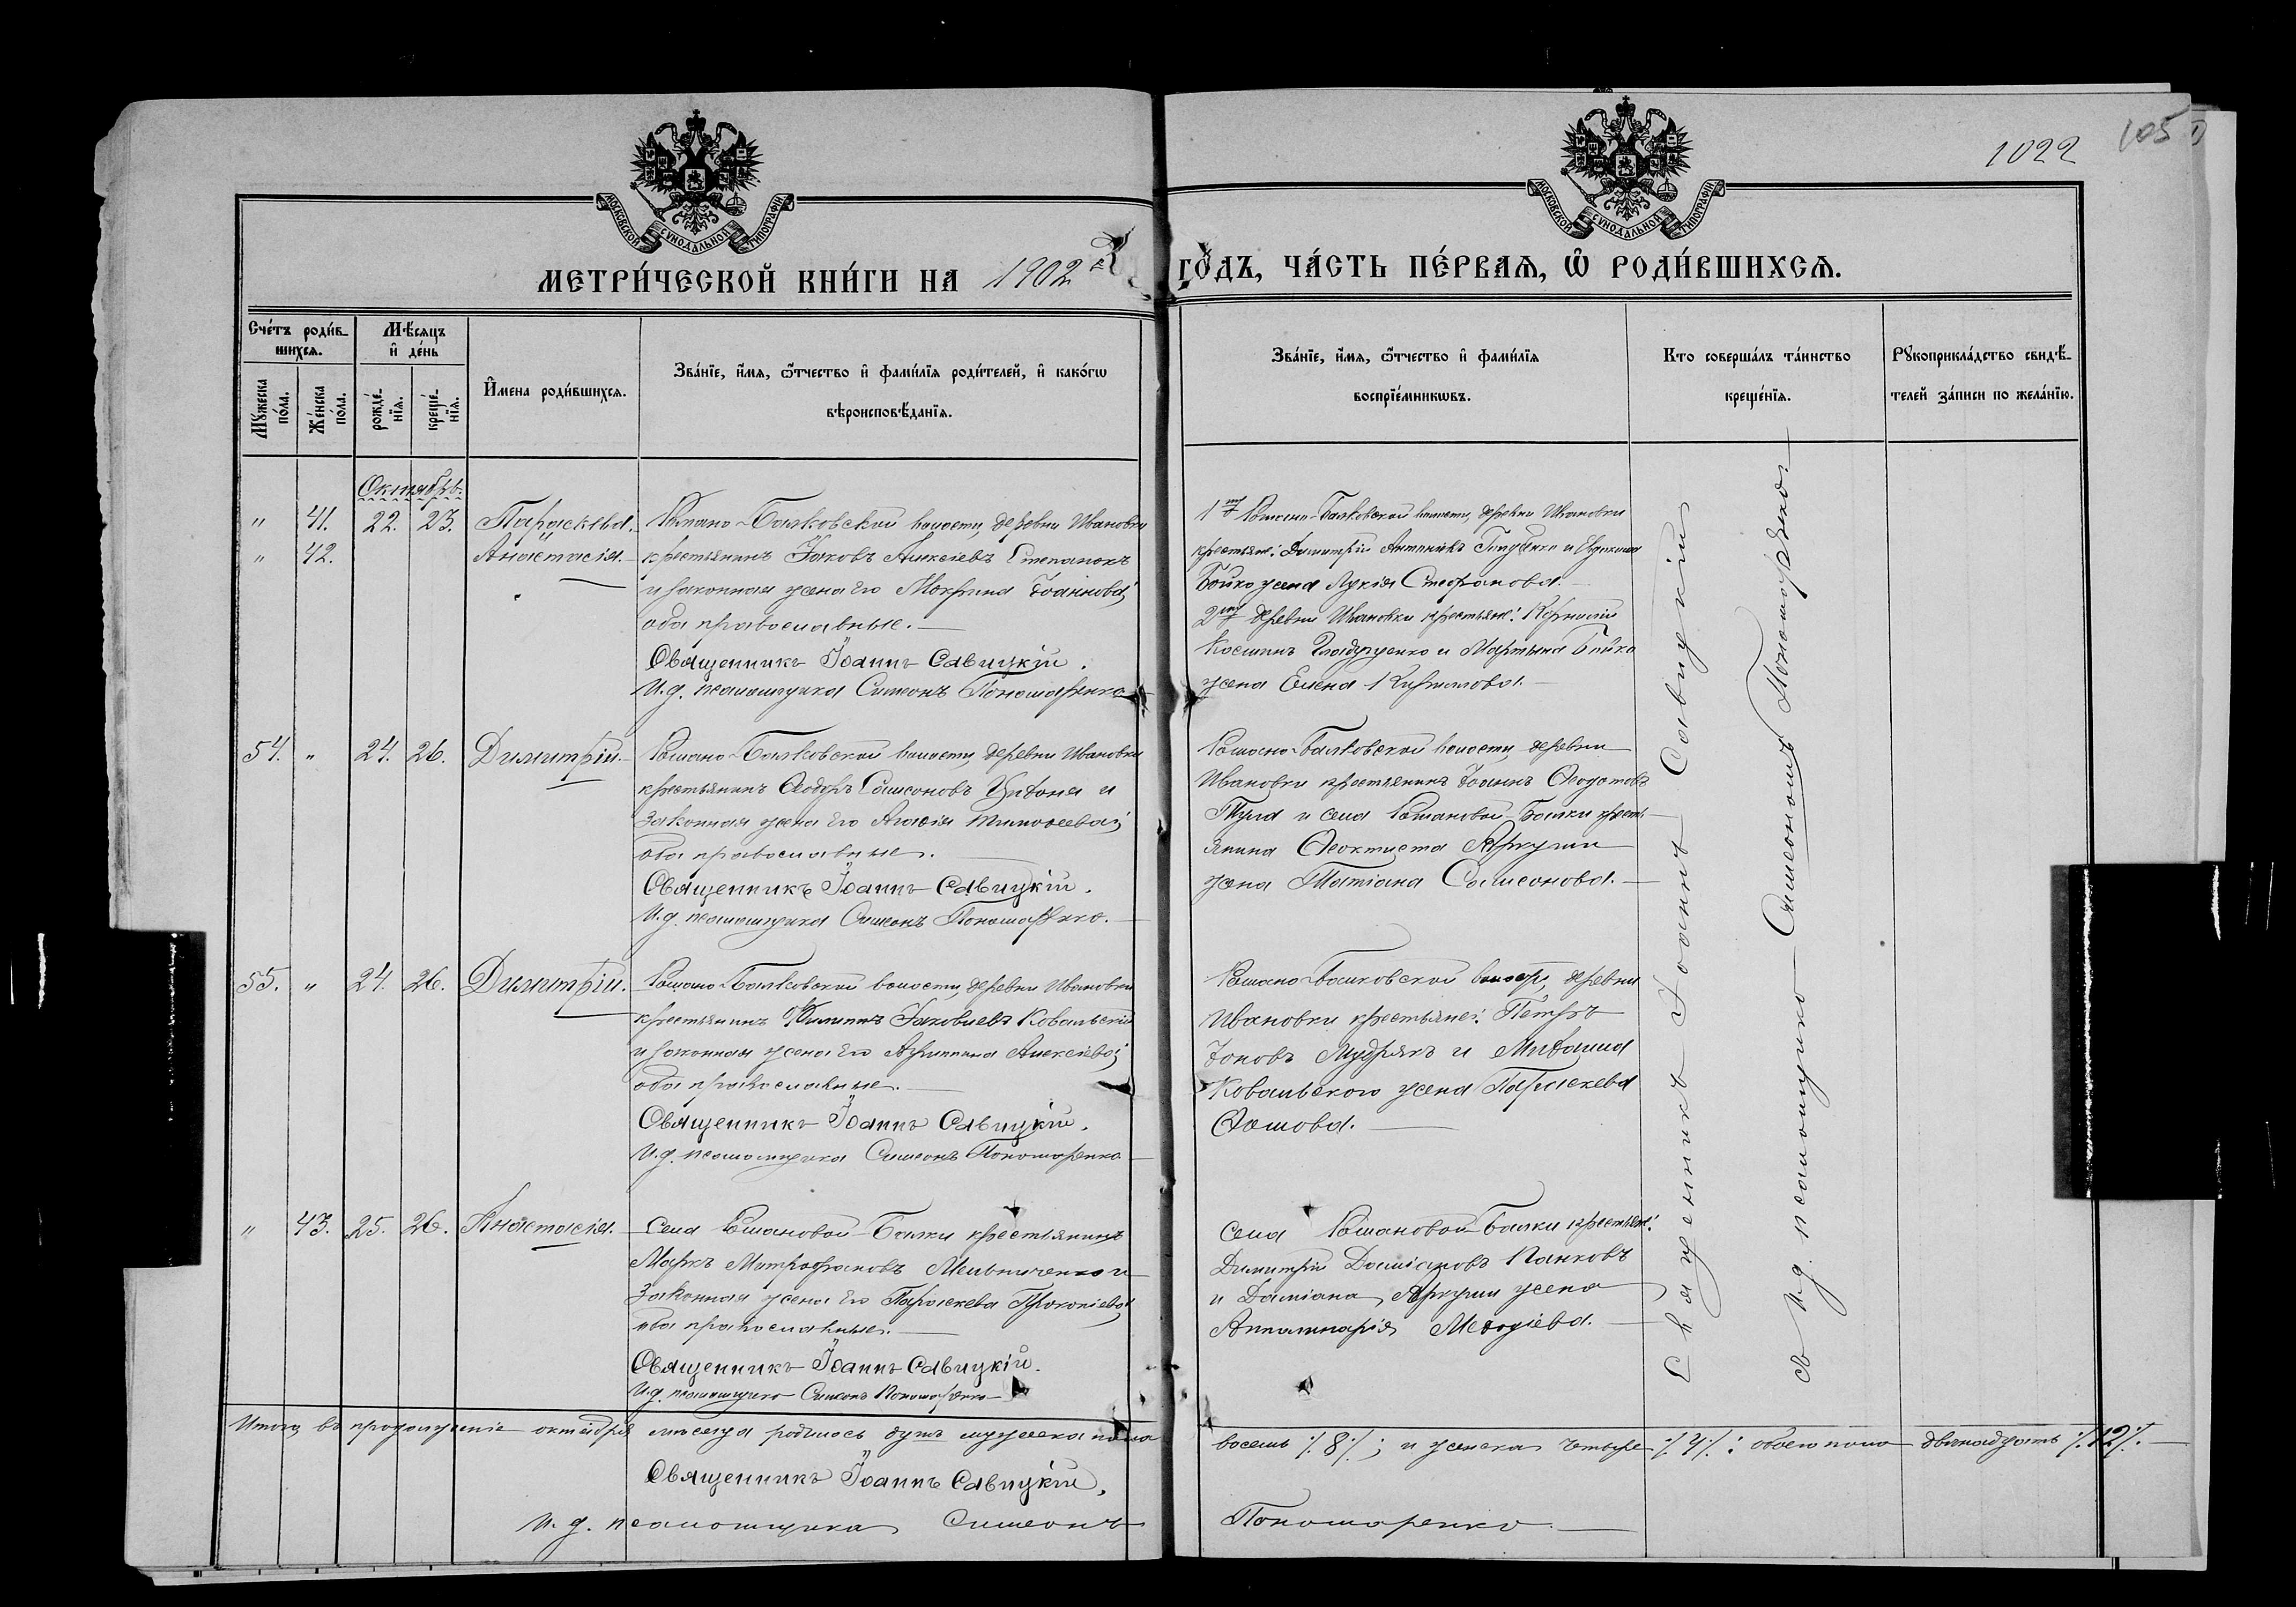 1022
105
МОСКОВСКОЙ СѴНОДАЛЬНОЙ ТИПОГРАФІИ
МОСКОВСКОЙ СѴНОДАЛЬНОЙ ТИПОГРАФІИ
МЕТРИ́ЧЕСКОЙ КНИ́ГИ НА 1902 й
ГО́ДЪ, ЧА́СТЬ ПЕ́РВАЯ, Ѡ҆ РОДИ́ВШИХСЯ.
Сче́тъ роди́в-
шихся.
Мѣ́сяцъ
и҆ де́нь
Мꙋ́жеска
по́ла.
Же́нска
по́ла.
рожде́-
нїѧ.
креще́-
нїѧ.
И҆мена роди́вшихся.
Зва́нїе, и҆́мѧ, ѻ҆́тчество и҆ фами́лїѧ роди́телей, и҆ како́гѡ
вѣроисповѣ́данїѧ.
Зва́нїе, и҆́мѧ, ѻ҆́тчество и҆ фами́лїѧ
воспрїе́мникѡвъ.
Кто соверша́лъ та́инство
креще́нїѧ.
Рꙋкоприкла́дство свидѣ́-
телей за́писи по жела́нїю.
Октябрь.
" 41. 22. 23. Параскева. Романо-Балковской волости, деревни Ивановки
" 42. Анастасія. крестьянинъ Іаковъ Алексіевъ Степанокъ
и законная жена его Мокрина Іоаннова;
оба православные.
Священникъ Іоаннъ Савицкій.
И. д. псаломщика Симеонъ Пономаренко
1й Романо-Балковской волости, деревни Ивановки
крестьяне: Димитрій Антоніевъ
Бойко жена Лукія Стефанова.
2й деревни Ивановки крестьяне: Корнилій
Косминъ и Мартына Бойко
жена Елена
54. " 24. 26. Димитрій. Романо-Балковской волости, деревни Ивановки
крестьянинъ Ѳеодоръ Самсоновъ Цѣпона и
законная жена его Агаѳія Тимоѳеева;
оба православные.
Священникъ Іоаннъ Савицкій.
И. д. псаломщика Симеонъ Пономаренко.
Романо-Балковской волости, деревни
Ивановки крестьянинъ Іоаннъ Ѳеодотовъ
и села Романовой-Балки кресть-
янина Ѳеоктиста Яркули
жена Татіана Самсонова.
55. " 24. 26. Димитрій. Романо-Балковской волости, деревни Ивановки
крестьянинъ Филиппъ Іаковлевъ Ковальскій
и законная жена его Агриппина Алексіева;
оба православные.
Священникъ Іоаннъ Савицкій.
И. д. псаломщика Симеонъ Пономаренко
Романо-Балковской волости, деревни
Ивановки крестьяне: Петръ
Іоновъ Мудрякъ и Михаила
Ковальского жена Параскева
Ѳомова.
" 43. 25. 26. Анастасія. Села Романовой-Балки крестьянинъ
Маркъ Митрофановъ Мельниченко и
законная жена его Параскева Прокопіева
оба православные.
Священникъ Іоаннъ Савицкій.
И. д. псаломщика Симеонъ Пономаренко
Села Романовой-Балки крестьяне:
Димитрій Даміановъ Панковъ
и Даміана Яркули жена
Апполинарія Меѳодіева.
Священникъ Іоаннъ Савицкій
съ и. д. псаломщика Симеономъ Пономаренко.
Итого въ продолженіе октября мѣсяца родилось душъ мужеска пола
восемь ./.8./.; и женска четыре ./.4./.: обоего пола двѣнадцать ./.12./.
Священникъ Іоаннъ Савицкій.
И. д. псаломщика Симеонъ
Пономаренко.